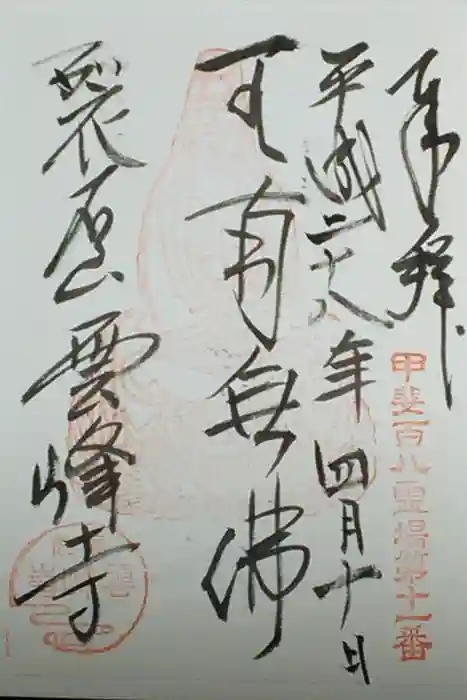 奉拝
甲斐百八霊場第十一番
平成二十八年四月十日
南無佛
裂石山雲峰寺